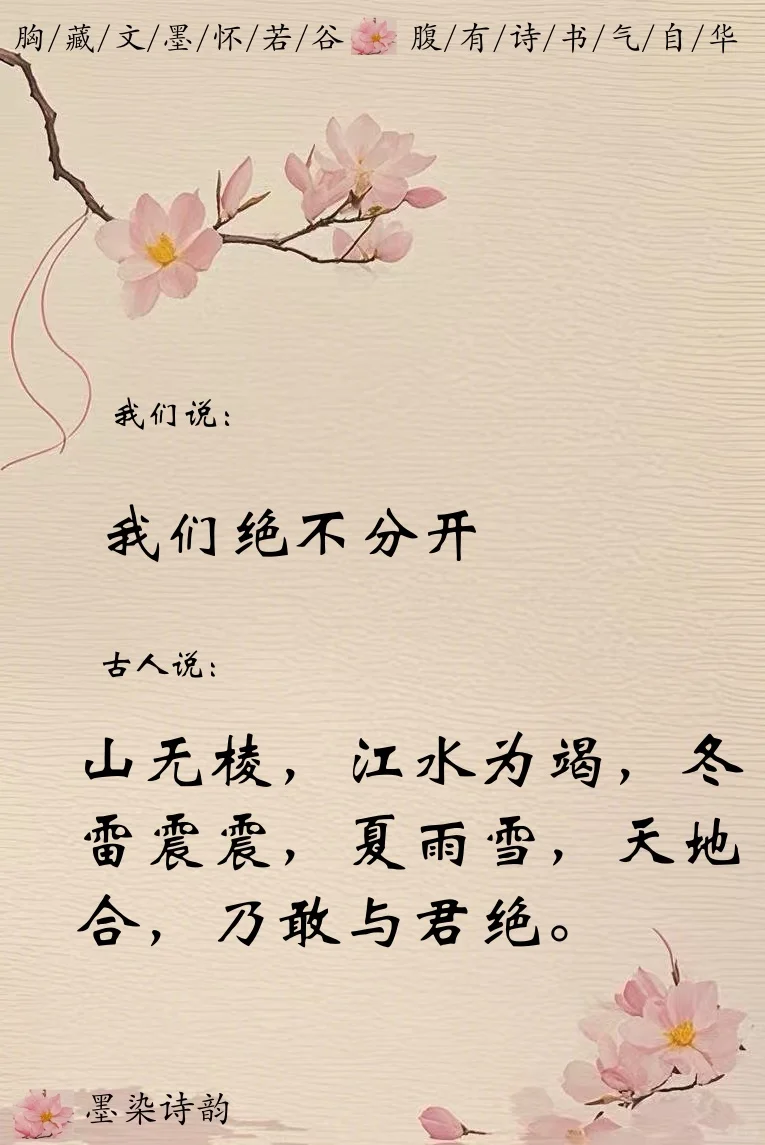 胸/藏/文/墨/怀/若/谷 腹/有/诗/书/气/自/华
我们说：
我们绝不分开
古人说：
山无棱，江水为竭，冬
雷震震，夏雨雪，天地
合，乃敢与君绝。
墨染诗韵